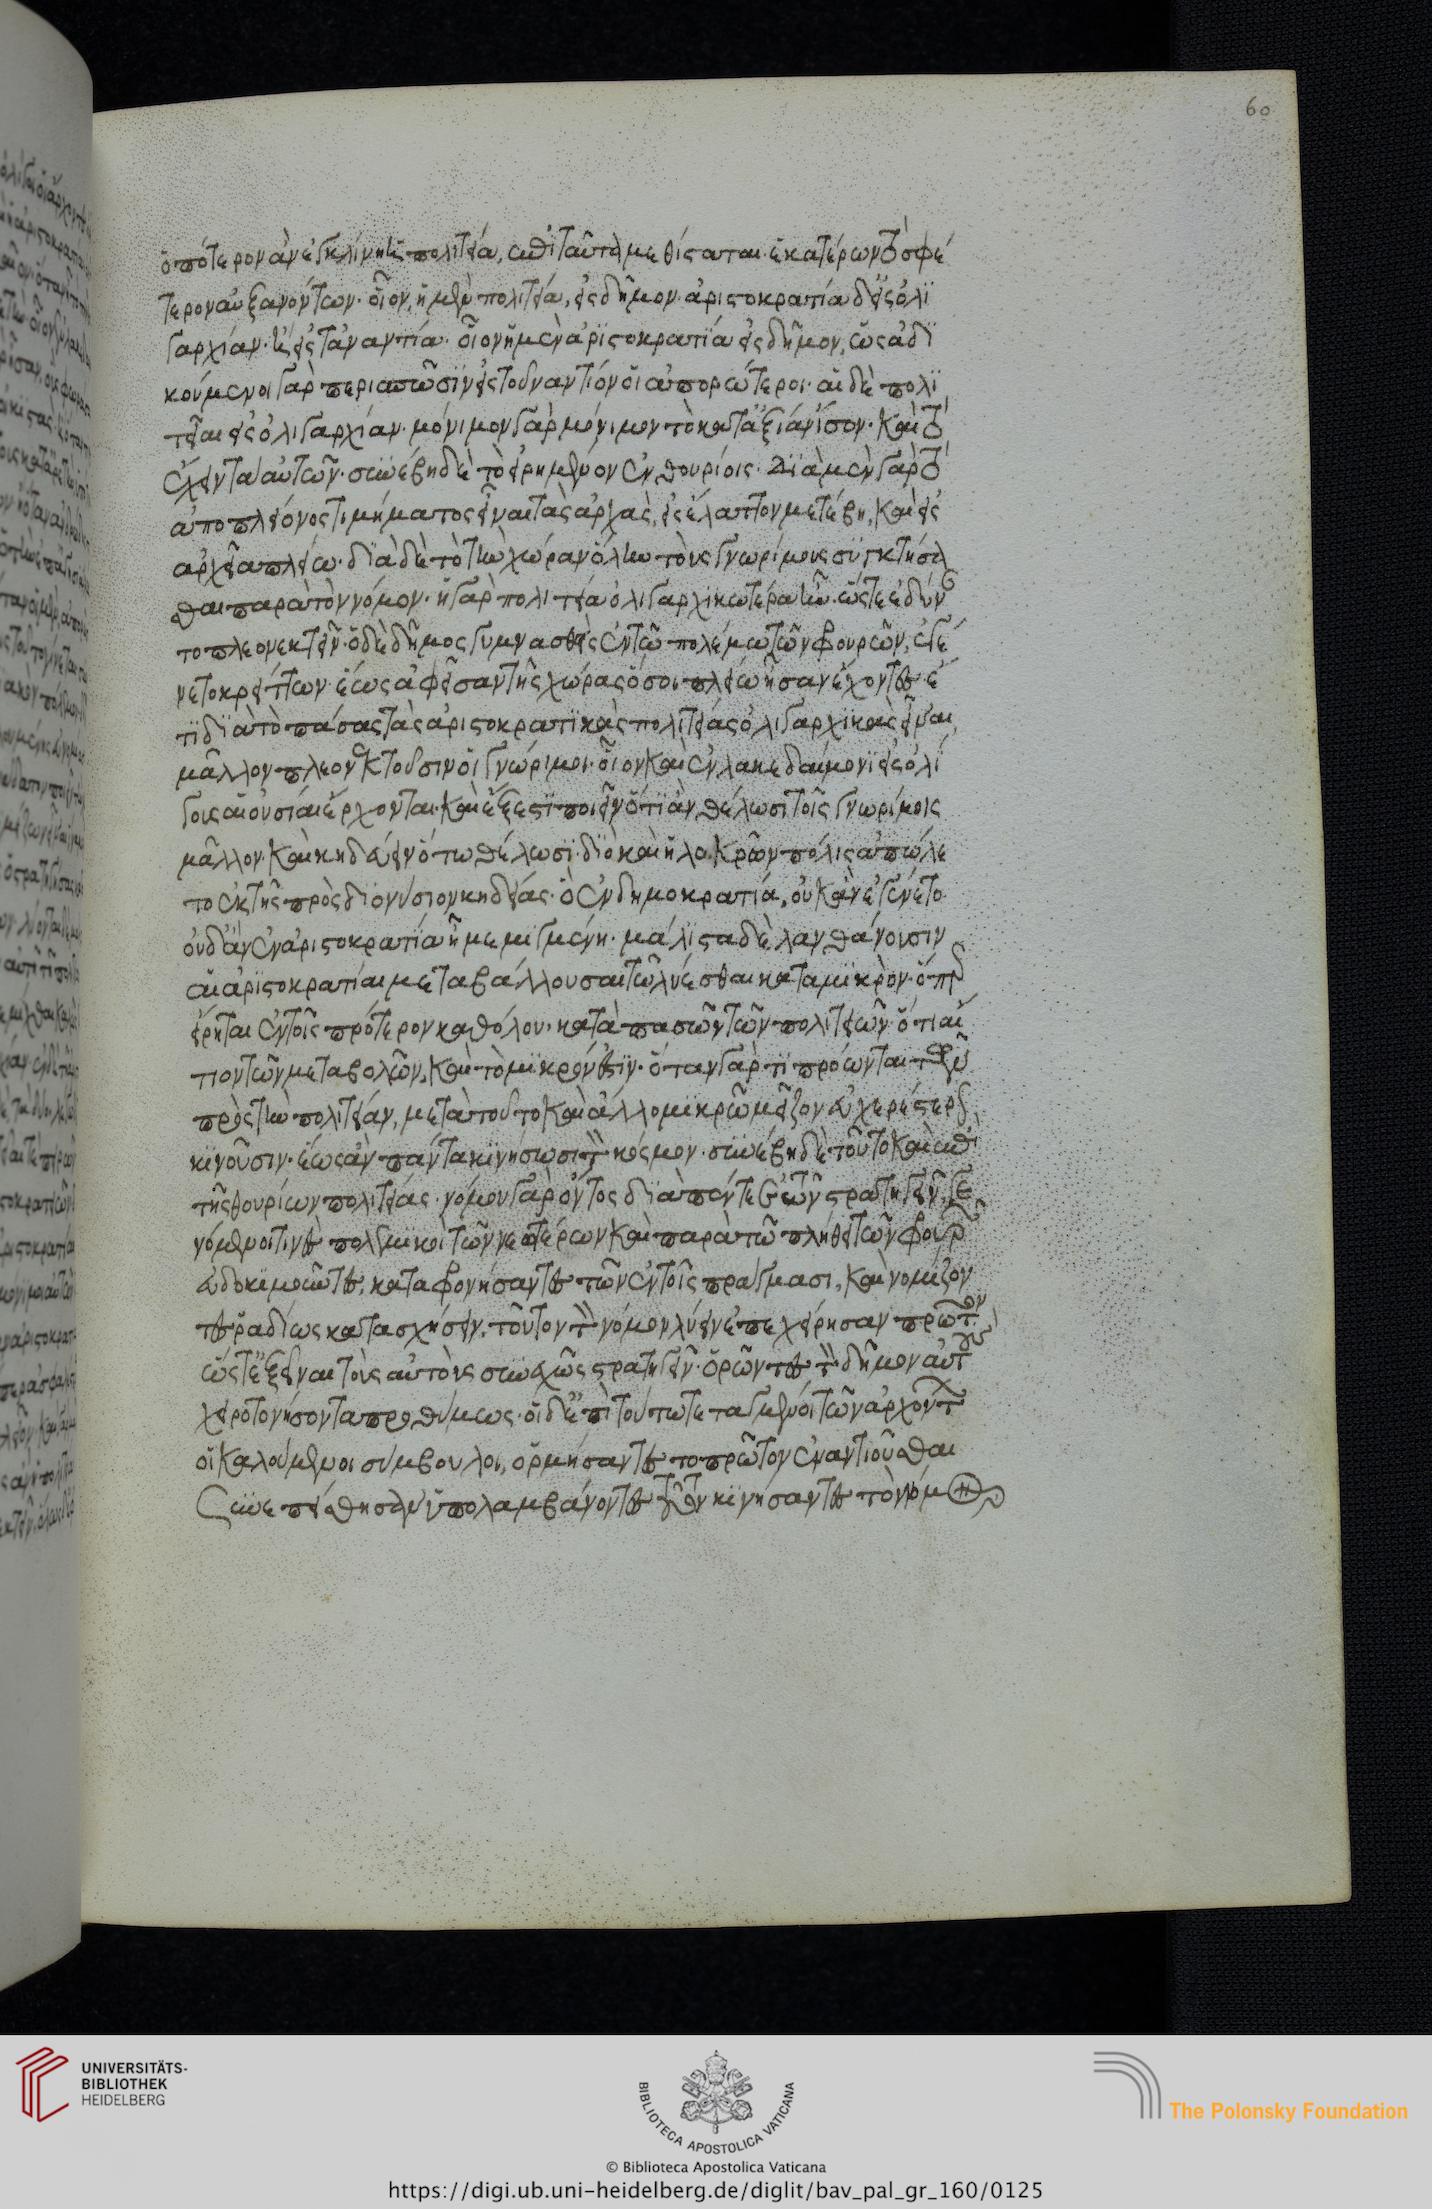 ὁπότερον ἂν ἐγκλίνῃ ἡ πολιτεία, ἐπὶ ταῦτα μεθίσταται· ἑκατέρων τὸ σφέ
τερον αὐξανόντων· οἷον, ἡ μὲν πολιτεία, εἰς δῆμον· ἀριστοκρατία δ' εἰς ὀλι
γαρχίαν· ἢ εἰς τἀναντία· οἷον ἡ μὲν ἀριστοκρατία εἰς δῆμον, ὡς ἀδι
κούμενοι γὰρ περισπῶσιν εἰς τοὐναντίον οἱ ἀπορώτεροι· αἱ δὲ πολι
τεῖαι εἰς ὀλιγαρχίαν· μόνιμον γὰρ μόνιμον τὸ κατ' ἀξίαν ἴσον· καὶ τὸ
ἔχειν τὰ αὑτῶν· συνέβη δὲ τὸ εἰρημένον ἐν θουρίοις· διὰ μὲν γὰρ τὸ
ἀπο πλείονος τιμήματος εἶναι τὰς ἀρχὰς, εἰς ἔλαττον μετέβη, καὶ εἰς
ἀρχεῖα πλείω· διὰ δὲ τὸ τὴν χώραν ὅλην τοὺς γνωρίμους συγκτήσα
σθαι παρὰ τὸν νόμον· ἡ γὰρ πολιτεία ὀλιγαρχικωτέρα ἦν· ὥστε ἐδύναν
το πλεονεκτεῖν· ὁ δὲ δῆμος γυμνασθεὶς ἐν τῷ πολέμω τῶν φρουρῶν, ἐγέ
νετο κρείττων· ἕως ἀφεῖσαν τῆς χώρας ὅσοι πλείω ἦσαν ἔχοντες· ἔ
τι διὰ τὸ πάσας τὰς ἀριστοκρατικὰς πολιτείας ὀλιγαρχικὰς εἶναι,
μᾶλλον πλεονεκτοῦσιν οἱ γνώριμοι· οἷον καὶ ἐν λακεδαίμονι εἰς ὀλί
γους αἱ οὐσίαι ἔρχονται· καὶ ἔξεστι ποιεῖν ὅ τι ἂν θέλωσι τοῖς γνωρίμοις
μᾶλλον· καὶ κηδεύειν ὅτω θέλωσι· διὸ καὶ ἡ λοκρῶν πόλις ἀπώλε
το ἐκ τῆς πρὸς διονύσιον κηδείας· ὃ ἐν δημοκρατία, οὐκ ἂν ἐγένετο
οὐδ' ἂν ἐν ἀριστοκρατία ἦ μεμιγμένη· μάλιστα δὲ λανθάνουσιν
αἱ ἀριστοκρατίαι μεταβάλλουσαι τῶ λύεσθαι κατα μικρὸν· ὅπερ
εἴρηται ἐν τοῖς πρότερον καθόλου· κατὰ πασῶν τῶν πολιτειῶν· ὅτι αἴ
τιον τῶν μεταβολῶν, καὶ τὸ μικρόν ἐστιν· ὅταν γὰρ τι προῶνται τῶν
πρὸς τὴν πολιτείαν, μετὰ τοῦτο καὶ ἄλλο μικρῶ μεῖζον εὐχερέστερον
κινοῦσιν· ἕως ἂν πάντα κινήσωσι τὸν κόσμον· συνέβη δὲ τοῦτο καὶ ἐπὶ
τῆς θουρίων πολιτείας· νόμου γὰρ ὄντος διὰ πέντε ἐτῶν στρατηγεῖν, γε
νόμενοί τινες πολεμικοὶ τῶν νεωτέρων καὶ παρὰ τῶ πλήθει τῶν φρουρῶν
εὐδοκιμοῦντες, καταφρονήσαντες τῶν ἐν τοῖς πράγμασι, καὶ νομίζον
τες ῥαδίως κατασχήσειν, τοῦτον τὸν νόμον λύειν ἐπεχείρησαν πρῶτον,
ὥστ' ἐξεῖναι τοὺς αὐτοὺς συνεχῶς στρατηγεῖν· ὁρῶντες τὸν δῆμον αὐτοὺς
χειροτονήσοντα προθύμως· οἱ δ' ἐπὶ τούτω τεταγμένοι τῶν ἀρχόντων
οἱ καλούμενοι σύμβουλοι, ὁρμήσαντες το πρῶτον ἐναντιοῦσθαι
συνεπείσθησαν ὑπολαμβάνοντες τοῦτον κινήσαντες τὸν νόμον